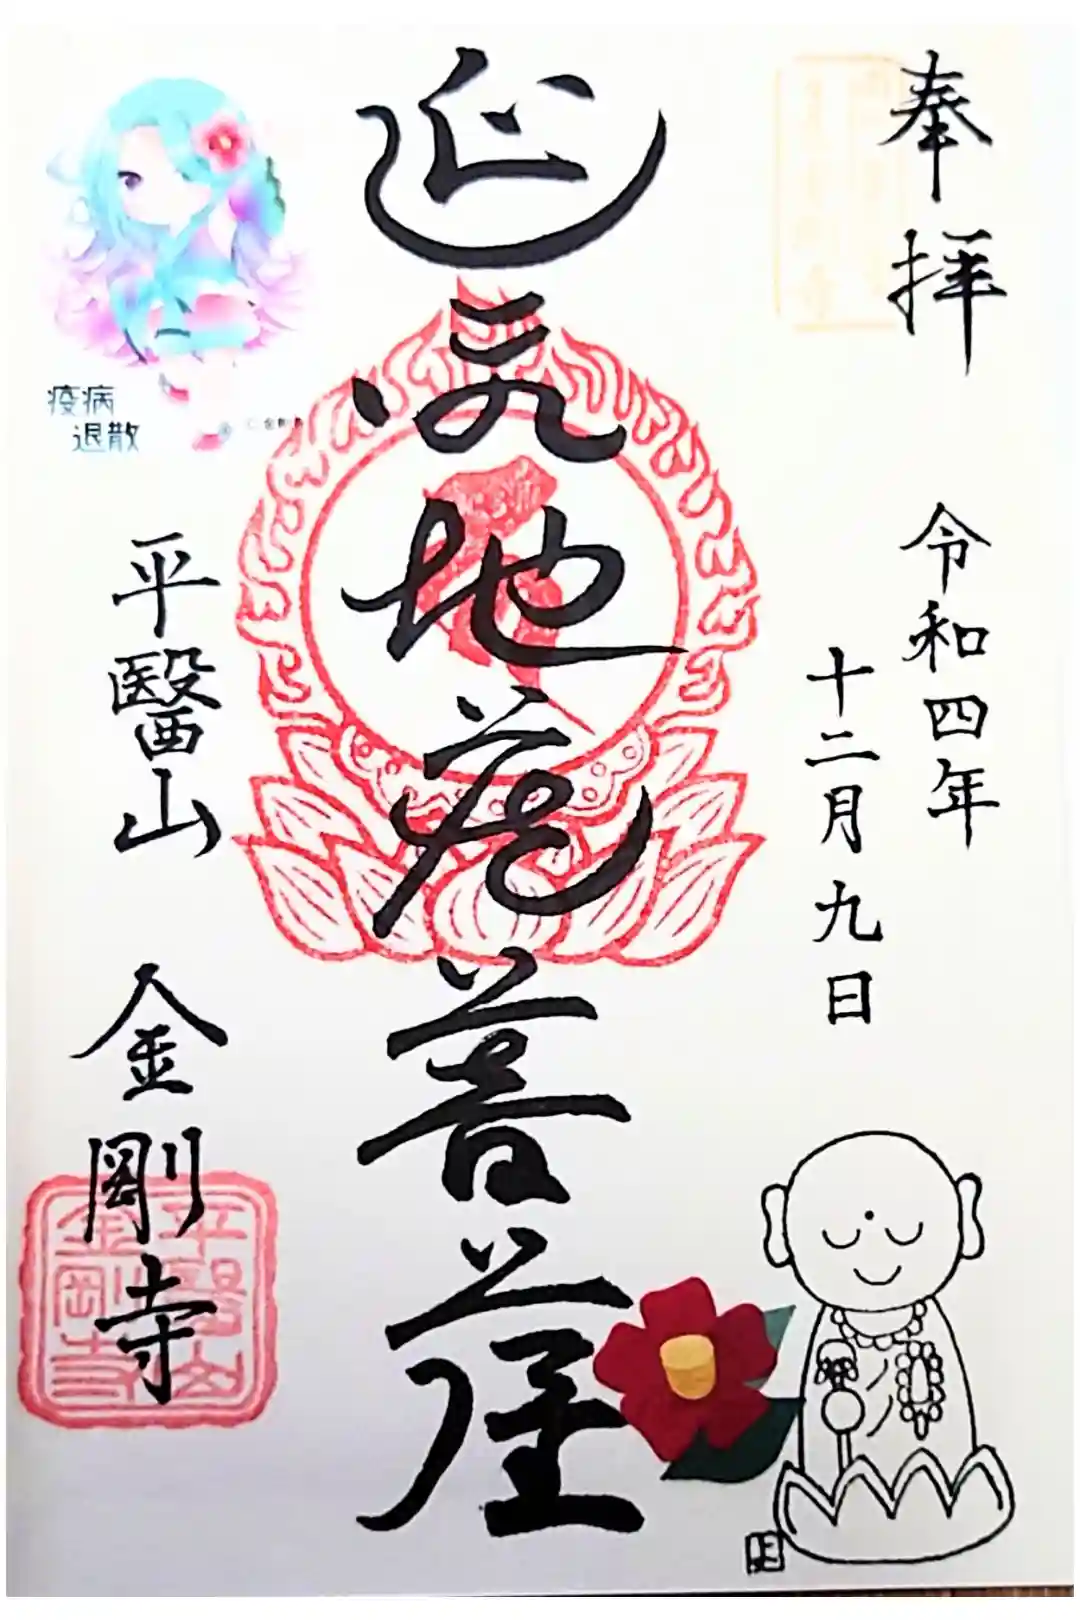 奉拝
令和四年
十二月九日
延命地蔵菩薩
疫病
退散
平醫山
金剛寺
平醫山
金剛寺